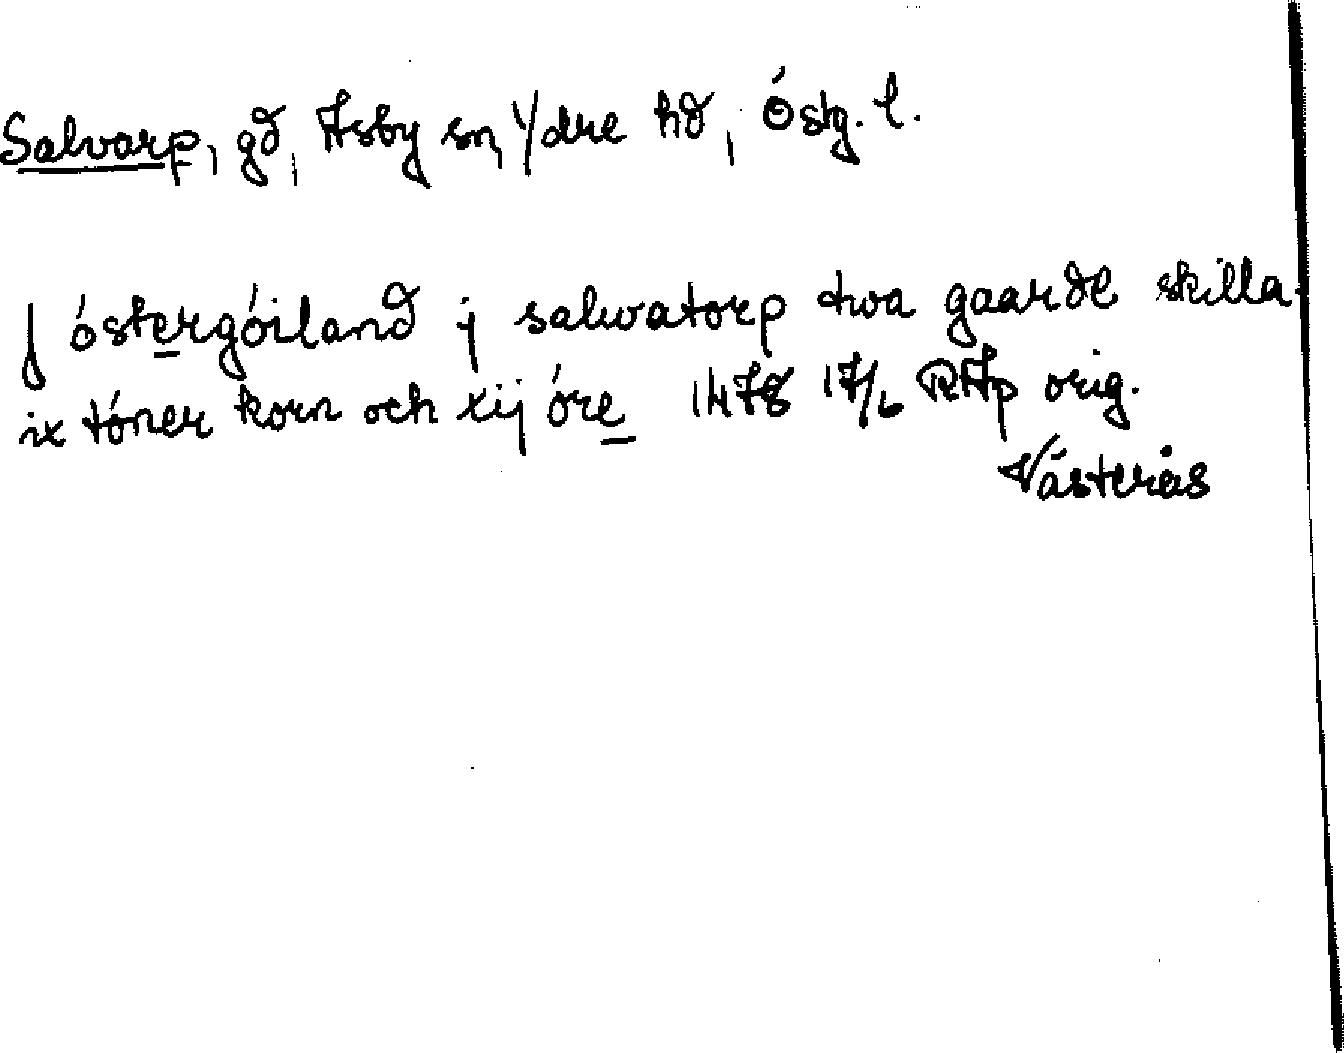 Salvarp, gd, Asby sn, Ydre hd, Östg. l.
J östergöiland j salwatorp twa gaarde skilla
ix töner korn och xij öre 1478 17/6 RAp orig.
Västerås